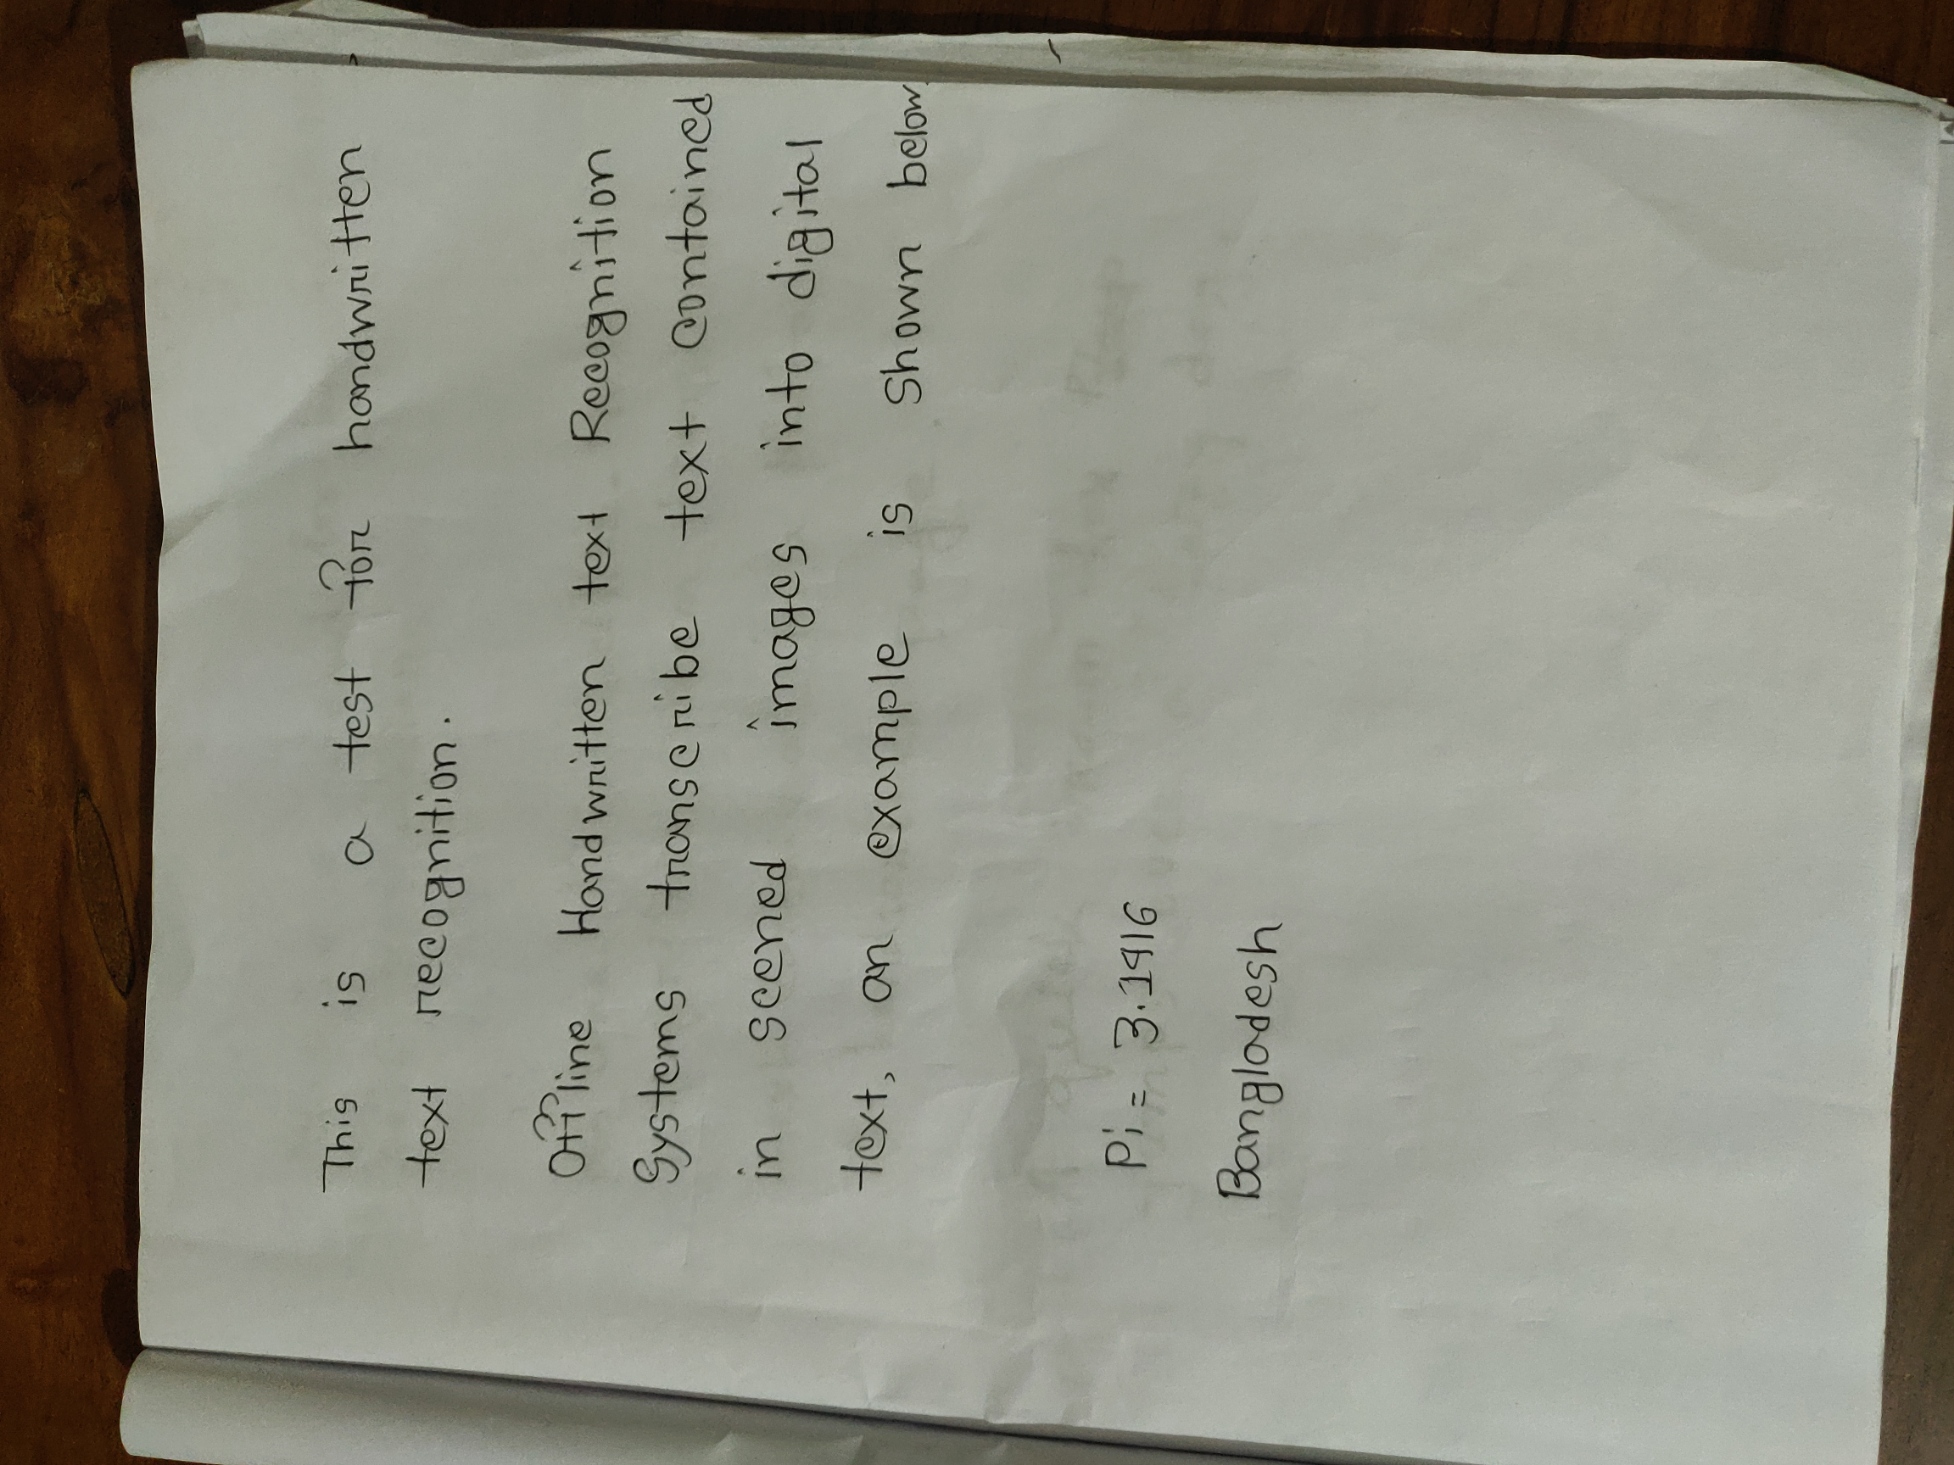 This is a test for handwritten
text recognition.
Offline Handwritten text Recognition
Systems transcribe text contained
in scened images into digital
text, an example is shown below.
Pi = 3.1416
Bangladesh